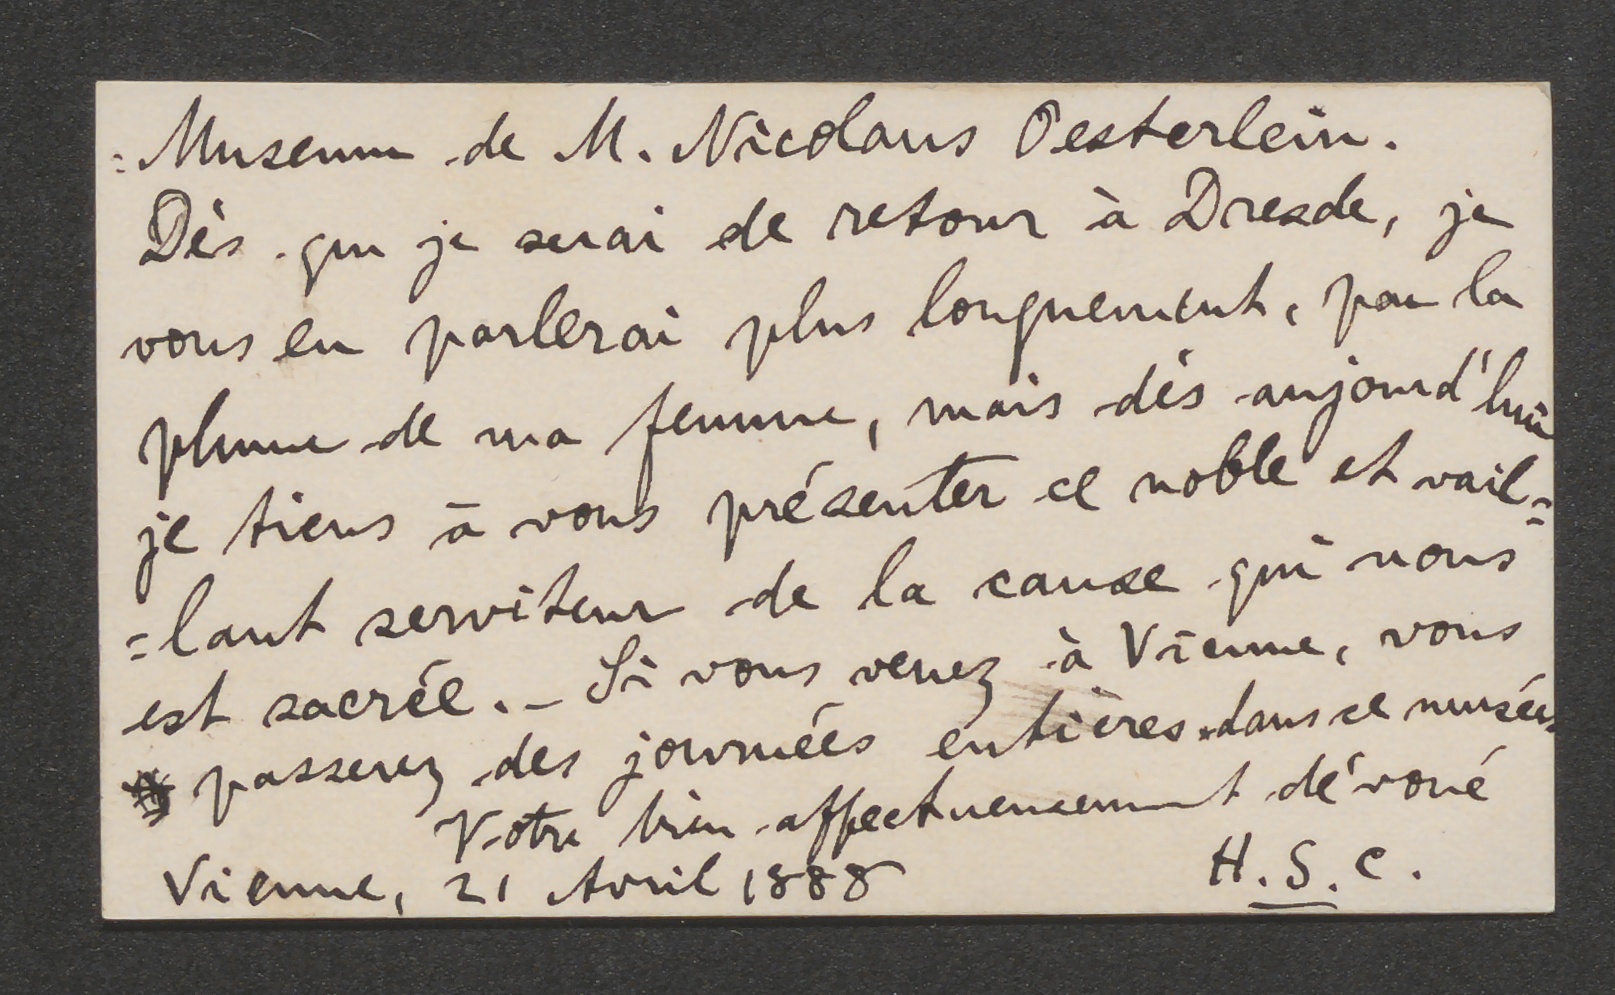 =Museum de M. Nicolaus Oesterlein.
Dès que je serai de retour à Dresde, je
vous en parlerai plus longuement, par la
plume de ma femme, mais dès aujourd'hui
je tiens à vous présenter ce noble et vail=
=lant serviteur de la cause qui nous
est sacrée. – Si vous venez à Vienne, vous
passerez des journées entières dans ce musée.
Votre bien affectueusement dévoué
Vienne, 21 Avril 1888 H. S. C.